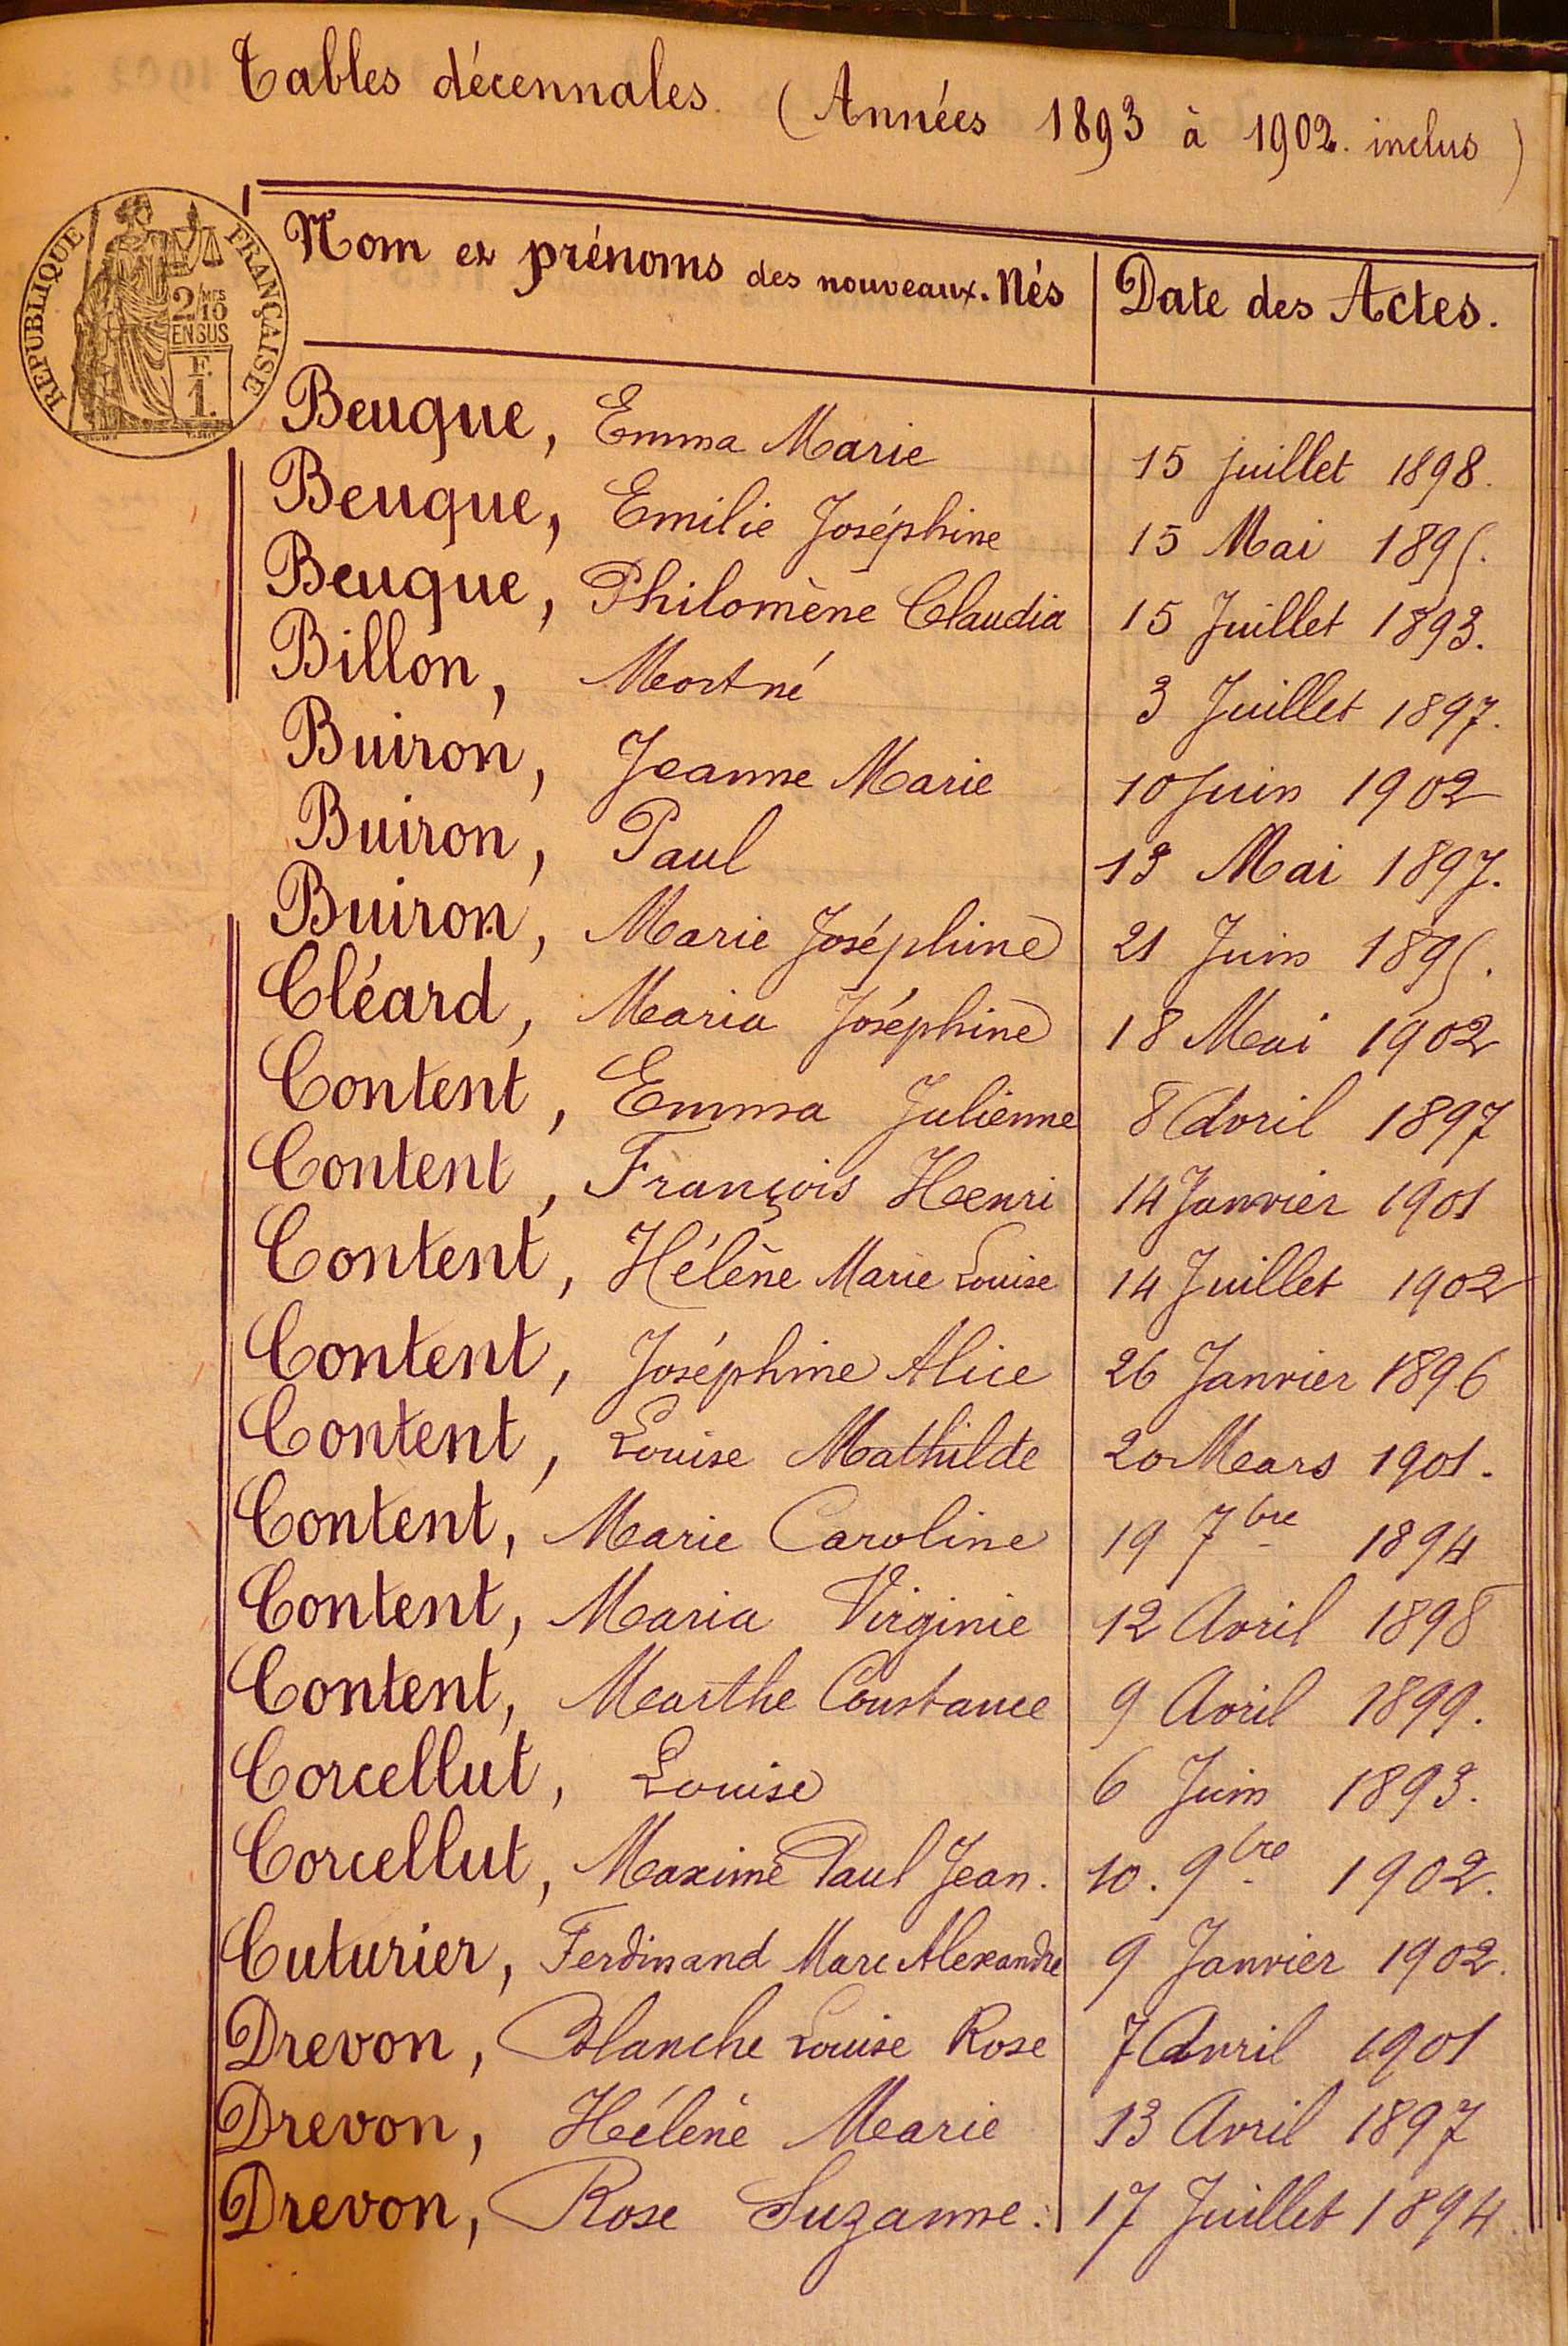 Tables décennales. (Années 1893 à 1902. inclus)
RÉPUBLIQUE FRANÇAISE
2/10 MES
EN SUS
F.
1.
Nom et prénoms des nouveaux-Nés Date des Actes.
Beuque, Emma Marie 15 juillet 1898.
Beuque, Emilie Joséphine 15 Mai 1895.
Beuque, Philomène Claudia 15 Juillet 1893.
Billon, Mort né 3 Juillet 1897.
Buiron, Jeanne Marie 10 Juin 1902
Buiron, Paul 13 Mai 1897.
Buiron, Marie Joséphine 21 Juin 1895.
Cléard, Maria Joséphine 18 Mai 1902
Content, Emma Julienne 8 Avril 1897
Content, François Henri 14 Janvier 1901
Content, Hélène Marie Louise 14 Juillet 1902
Content, Joséphine Alice 26 Janvier 1896
Content, Louise Mathilde 20 Mars 1901.
Content, Marie Caroline 19 7bre 1894
Content, Maria Virginie 12 Avril 1898
Content, Marthe Constance 9 Avril 1899.
Corcellut, Louise 6 Juin 1893.
Corcellut, Maxime Paul Jean. 10. 9bre 1902.
Cuturier, Ferdinand Marc Alexandre 9 Janvier 1902.
Drevon, Blanche Louise Rose 7 Avril 1901
Drevon, Hélène Marie 13 Avril 1897
Drevon, Rose Suzanne. 17 Juillet 1894